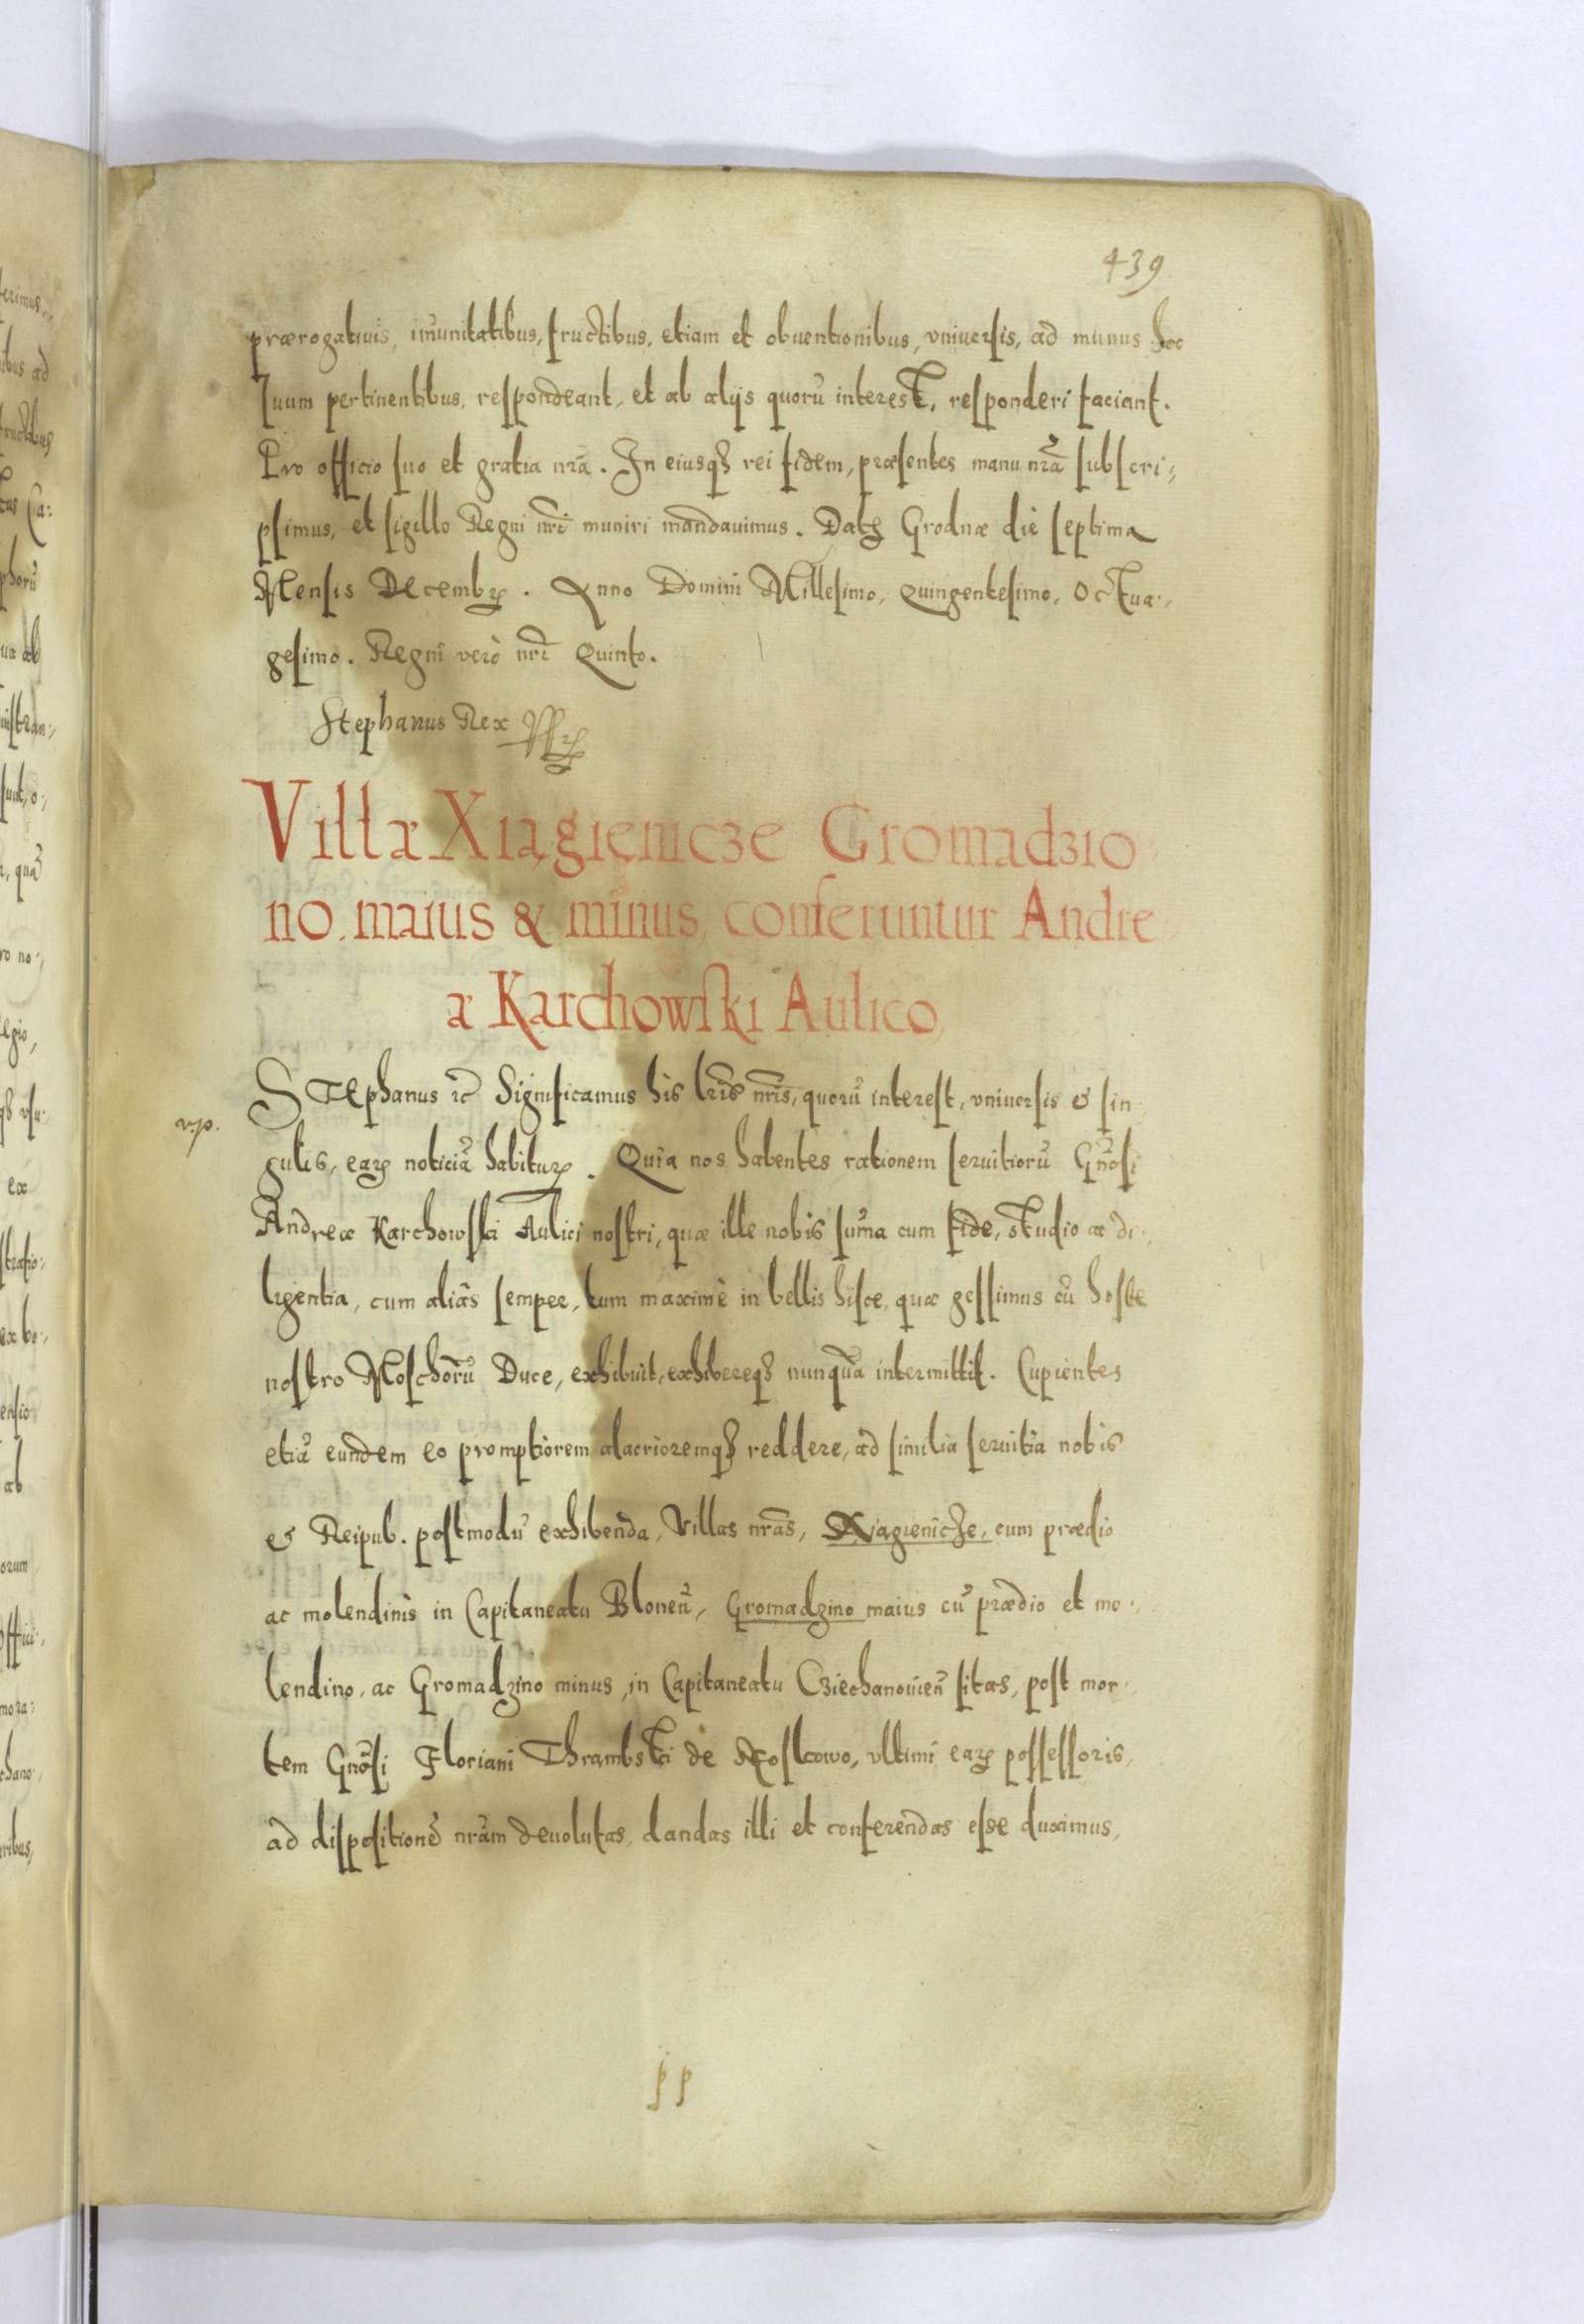 439
prærogatiuis, imũnitatibus, fructibus, etiam et obuentionibus, vniuersis, ad munus hoc
suum pertinentibus, respondeant, et ab alijs quorũ interest, responderi faciant.
Pro officio suo et gratia nrã. In eiusqȝ rei fidem, præsentes manu nrã subscri-
psimus, et sigillo Regni nrĩ muniri mandauimus. Datꝭ Grodnæ die septima
Mensis Decembꝝ. Anno Domini Millesimo, quingentesimo, Octua-
gesimo. Regni verò nrĩ Quinto.
Stephanus Rex
Villæ Xiągienicze Gromadzio
no, maius & minus, conferuntur Andre
æ Karchowski Aulico,
Stephanus ꝛc̃ Significamus his lrĩs nrĩs, quorũ interest, vniuersis & sin-
v.p.
gulis, eaꝝ noticiã habituꝝ. Quia nos habentes rationem seruitiorũ Gnõsi
Andreæ Karchowski Aulici nostri, quæ ille nobis sum̃a cum fide, studio ac di-
ligentia, cum aliàs semper, tum maximè in bellis hisce, quæ gessimus cũ hoste
nostro Moschorũ Duce, exhibuit, exhibereqȝ nunquã intermittit. Cupientes
etiã eundem eo promptiorem alacrioremqȝ reddere, ad similia seruitia nobis
& Reipub. postmodũ exhibenda, Villas nrãs, Xiągienicze, cum prædio
ac molendinis in Capitaneatu Blonen̄, Gromadzino maius cũ prædio et mo-
lendino, ac Gromadzino minus, in Capitaneatu Cziechanouien̄ sitas, post mor-
tem Gnõsi Floriani Thrambski de vltimi eaꝝ possessoris,
ad dispositionẽ nrãm deuolutas, dandas illi et conferendas esse duximus,